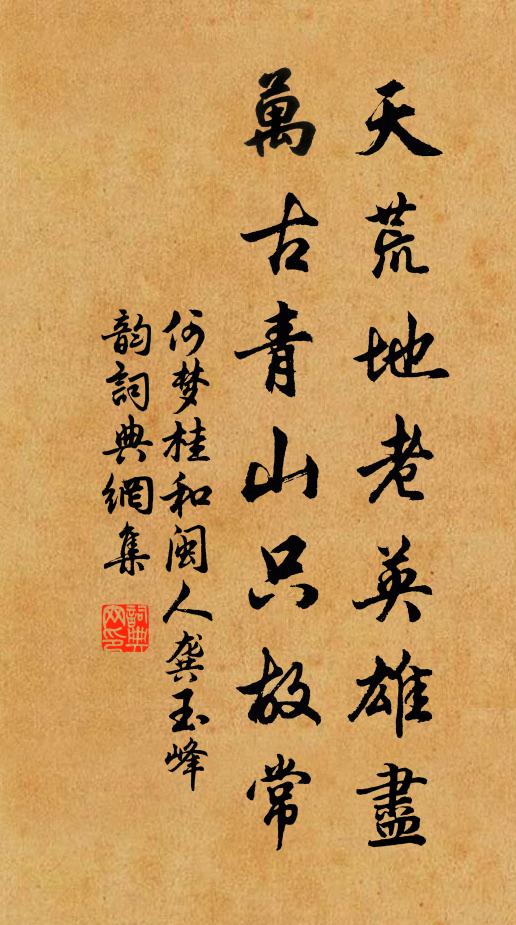 天荒地老英雄盡
萬古青山只故常
何梦桂和閩人龚玉峰
韵詞典網集
詞典网印